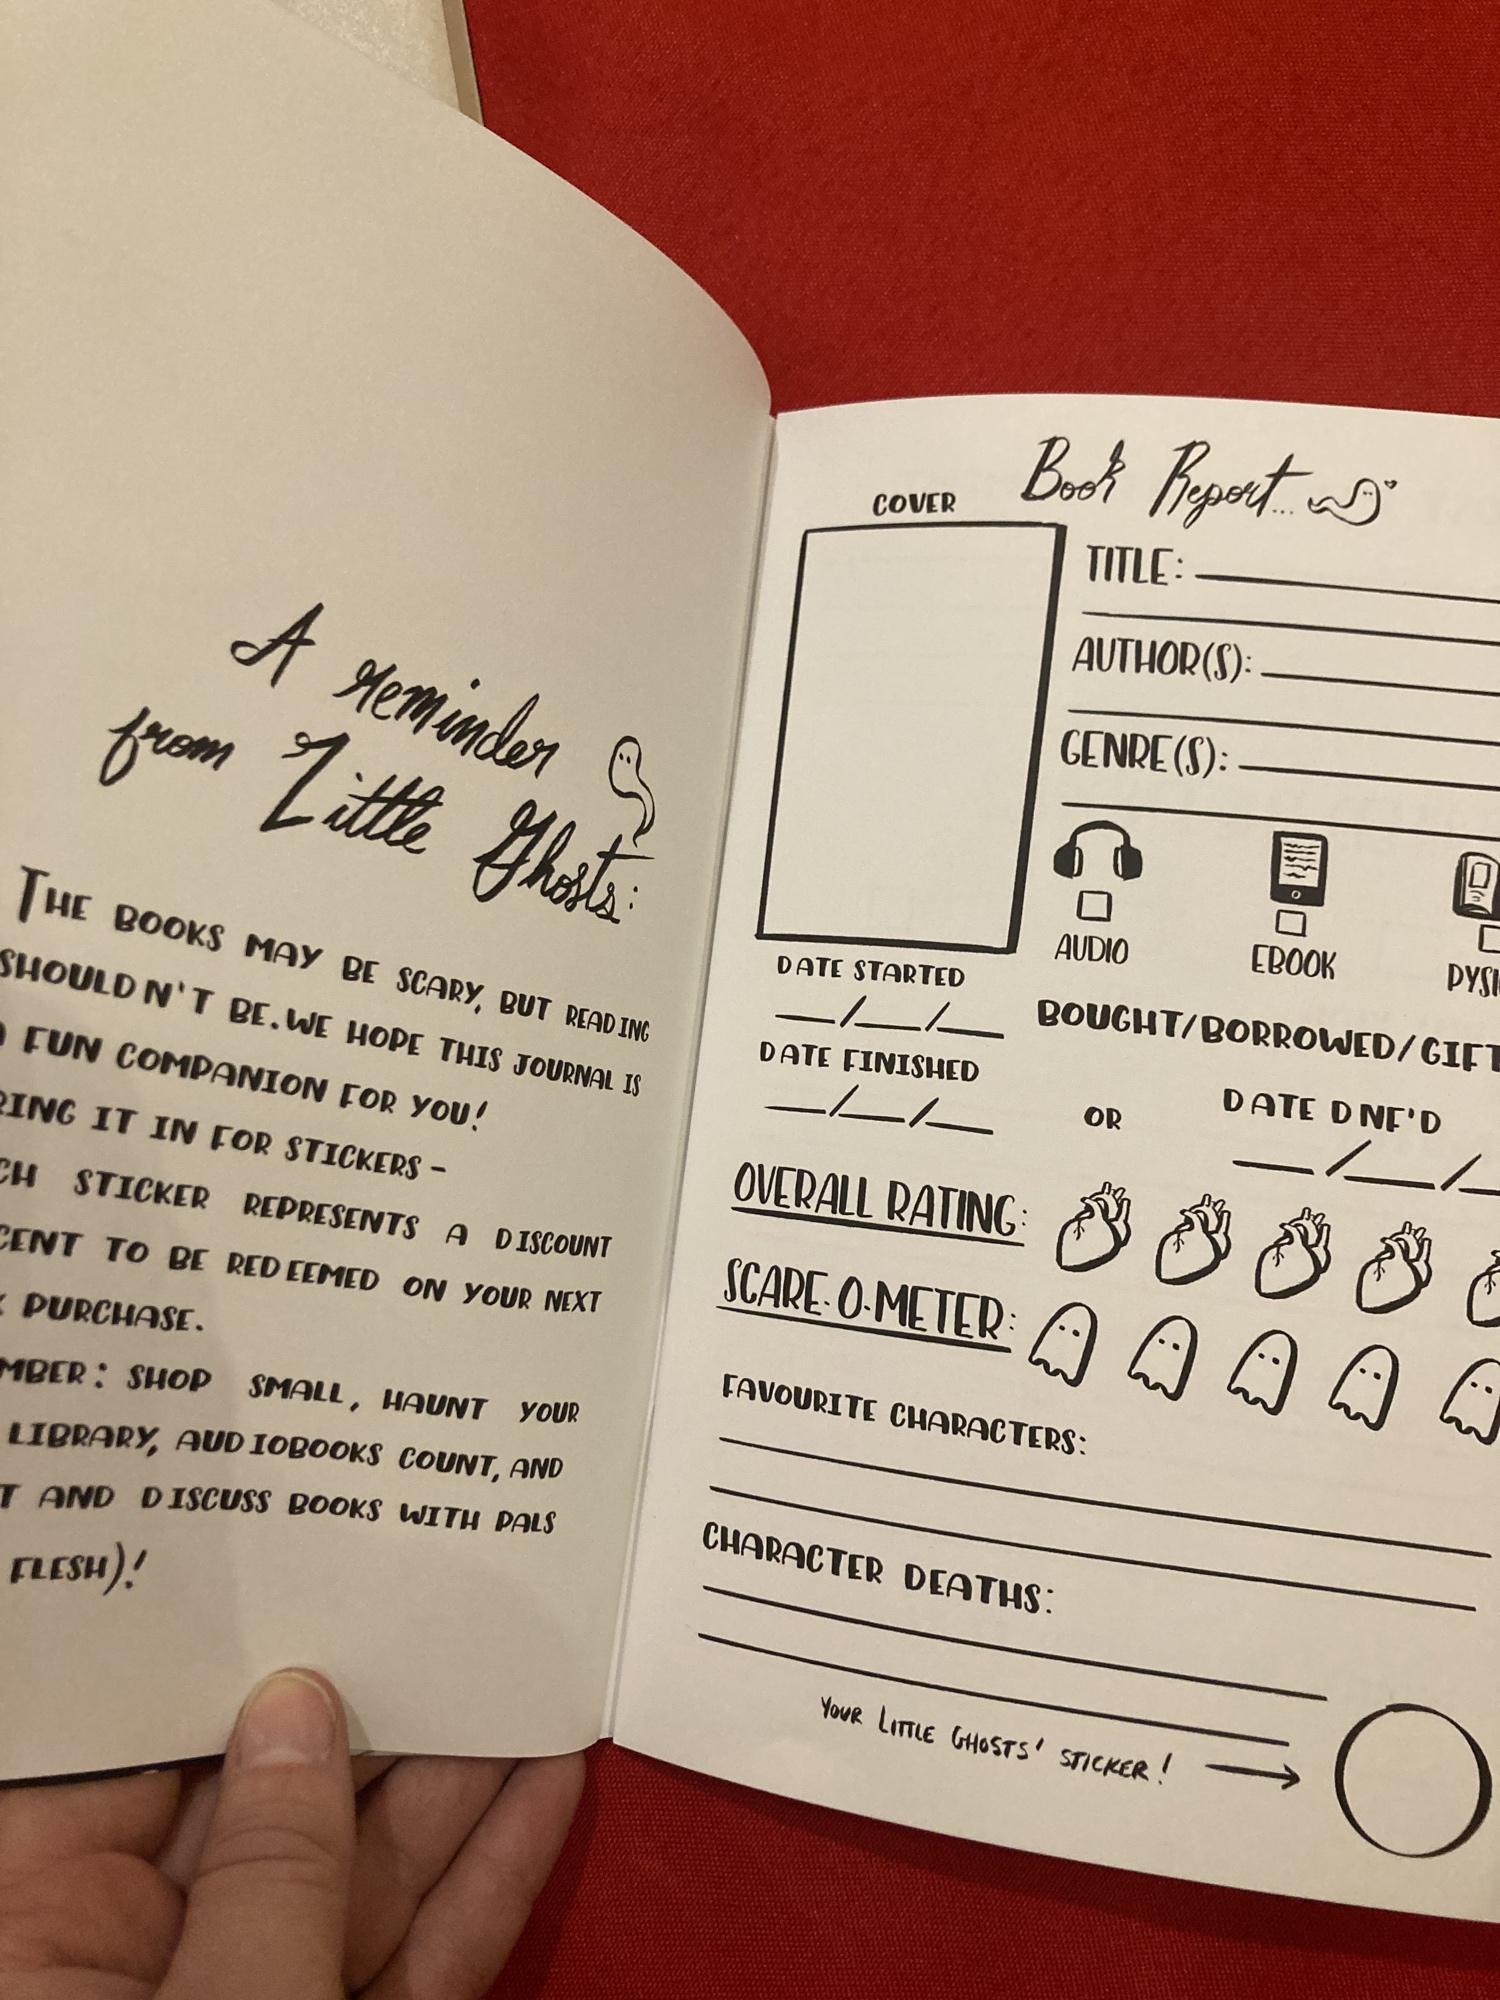 A reminder
from Little Ghosts:
THE BOOKS MAY BE SCARY, BUT READING
SHOULDN'T BE. WE HOPE THIS JOURNAL IS
A FUN COMPANION FOR YOU!
IT IN FOR STICKERS -
STICKER REPRESENTS A DISCOUNT
TO BE REDEEMED ON YOUR NEXT
PURCHASE.
SHOP SMALL, HAUNT YOUR
LIBRARY, AUDIOBOOKS COUNT, AND
AND DISCUSS BOOKS WITH PALS
FLESH)!
Book Report...
COVER
TITLE:
AUTHOR(S):
GENRE(S):
AUDIO
EBOOK
DATE STARTED
BOUGHT/BORROWED/GIFT
DATE FINISHED
OR
DATE DNF'D
OVERALL RATING:
SCARE-O-METER:
FAVOURITE CHARACTERS:
CHARACTER DEATHS:
YOUR LITTLE GHOSTS' STICKER!